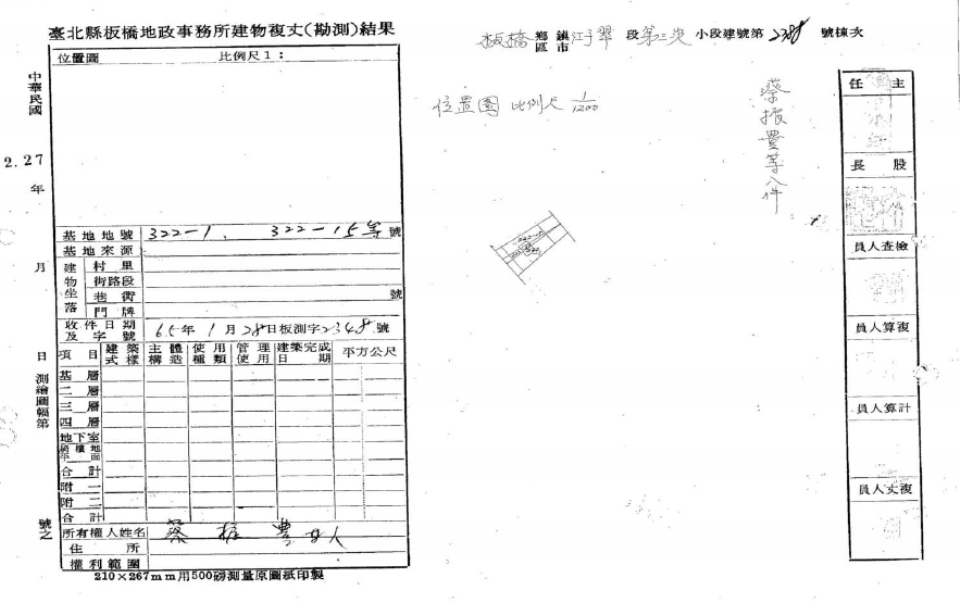 臺北縣板橋地政事務所建物複丈(勘測)結果
位置圖 比例尺1：
中華民國
2.27
年
月
日
測繪圖幅第
號之
基地地號 322-1、 322-15等 號
基地來源
建物坐落
村里
街路段
巷衖 號
門牌
收件日期及字號 65年1月28日板測字2348號
項目 建築式樣 主體構造 使用種類 管理使用 建築完成日期 平方公尺
基層
二層
三層
四層
地下室
騎樓地平面
合計
附一
附二
合計
所有權人姓名 蔡振豐
住所
權利範圍
210×267mm用500磅測量原圖紙印製
板橋 鄉鎮區市 江子翠 段 第二 小段建號第 號棟次
位置圖 比例尺 1/1200
蔡振豐等八件
主任
股長
檢查人員
複算人員
計算人員
複丈人員